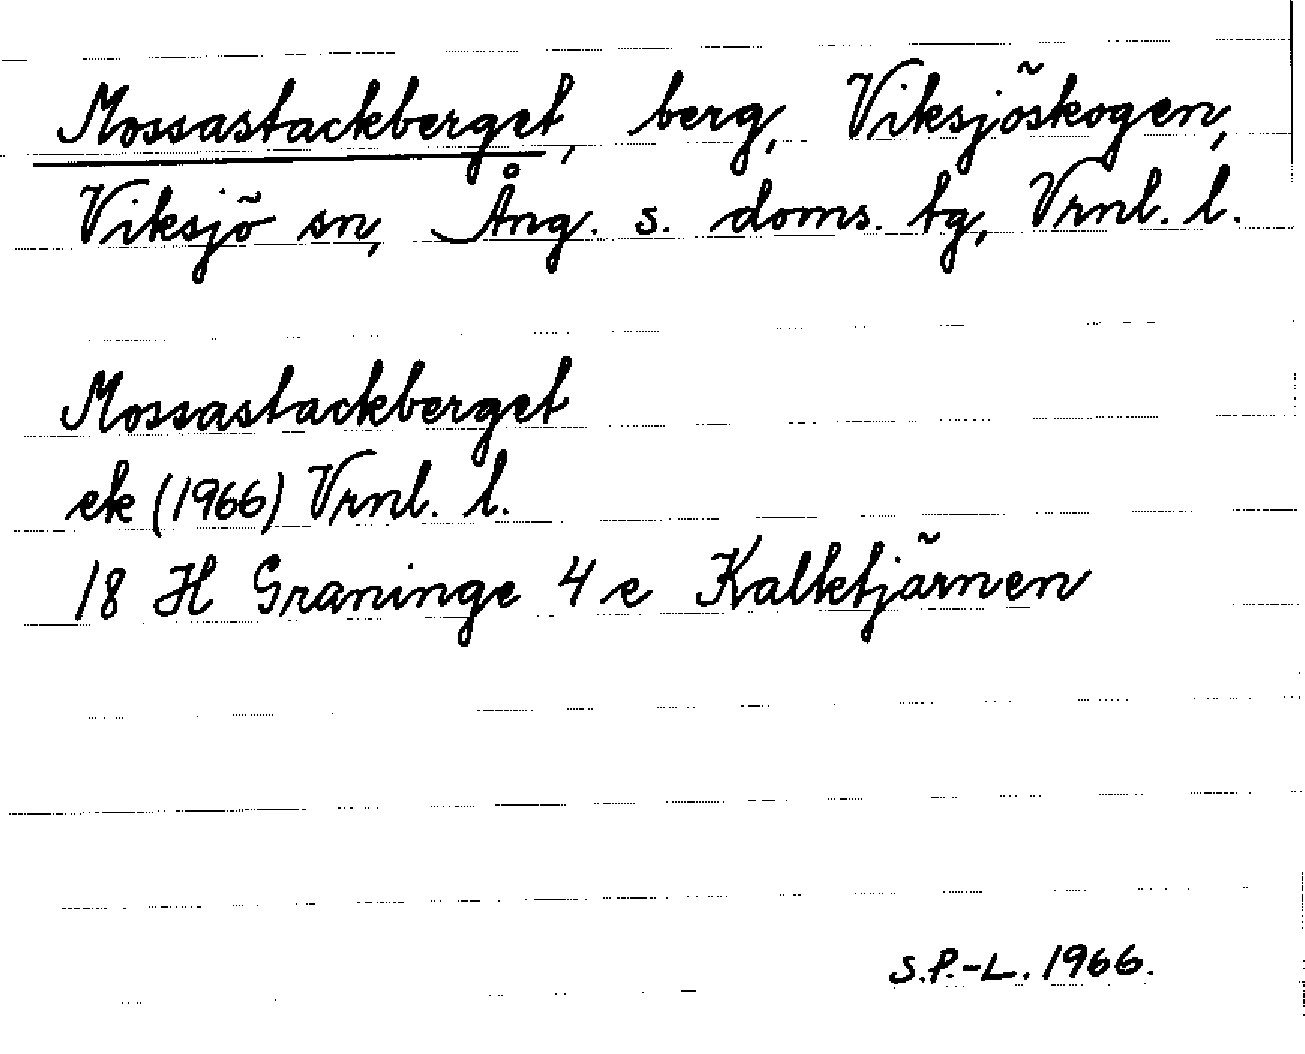 Mossastackberget, berg, Viksjöskogen,
Viksjö sn, Ång. s. doms. tg, Vrnl. l.
Mossastackberget
ek (1966) Vrnl. l.
18 H Graninge 4 e Kalktjärnen
S.P.-L. 1966.